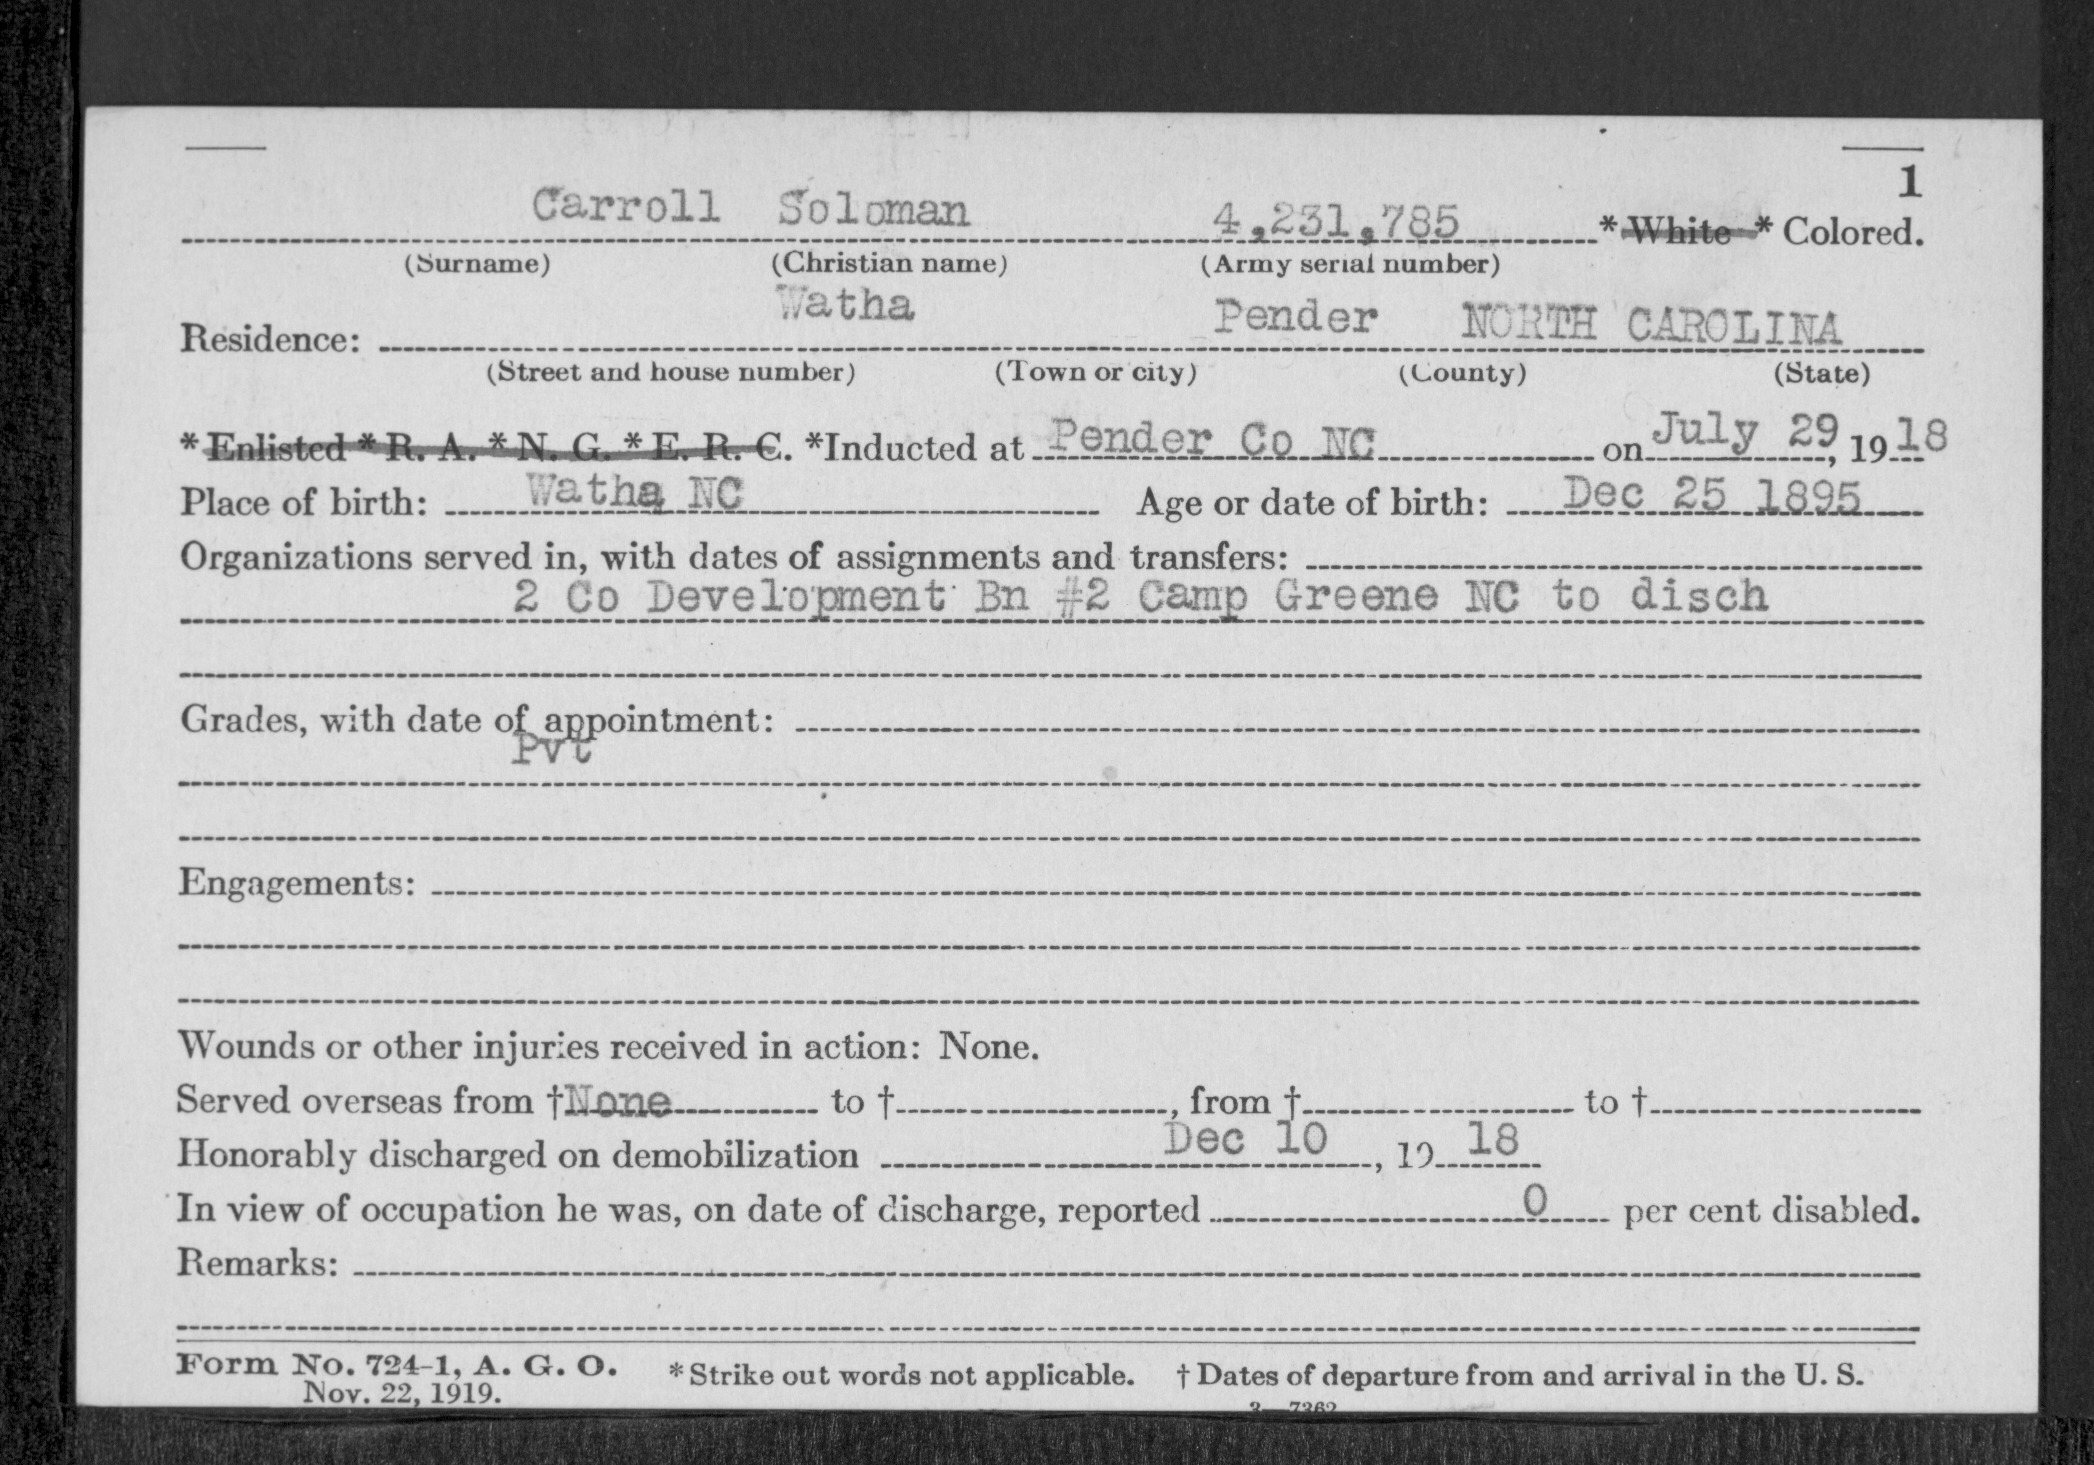 1
Carroll Soloman 4,231,785 * White * Colored.
(Surname) (Christian name) (Army serial number)
Watha Pender NORTH CAROLINA
Residence:
(Street and house number) (Town or city) (County) (State)
* Enlisted * R. A. * N. G. * E. R. C. *Inducted at Pender Co NC on July 29, 1918
Place of birth: Watha NC Age or date of birth: Dec 25 1895
Organizations served in, with dates of assignments and transfers:
2 Co Development Bn #2 Camp Greene NC to disch
Grades, with date of appointment:
Pvt
Engagements:
Wounds or other injuries received in action: None.
Served overseas from †None to †, from † to †
Honorably discharged on demobilization Dec 10, 1918
In view of occupation he was, on date of discharge, reported 0 per cent disabled.
Remarks:
Form No. 724-1, A. G. O. * Strike out words not applicable. † Dates of departure from and arrival in the U. S.
Nov. 22, 1919. 3—7362